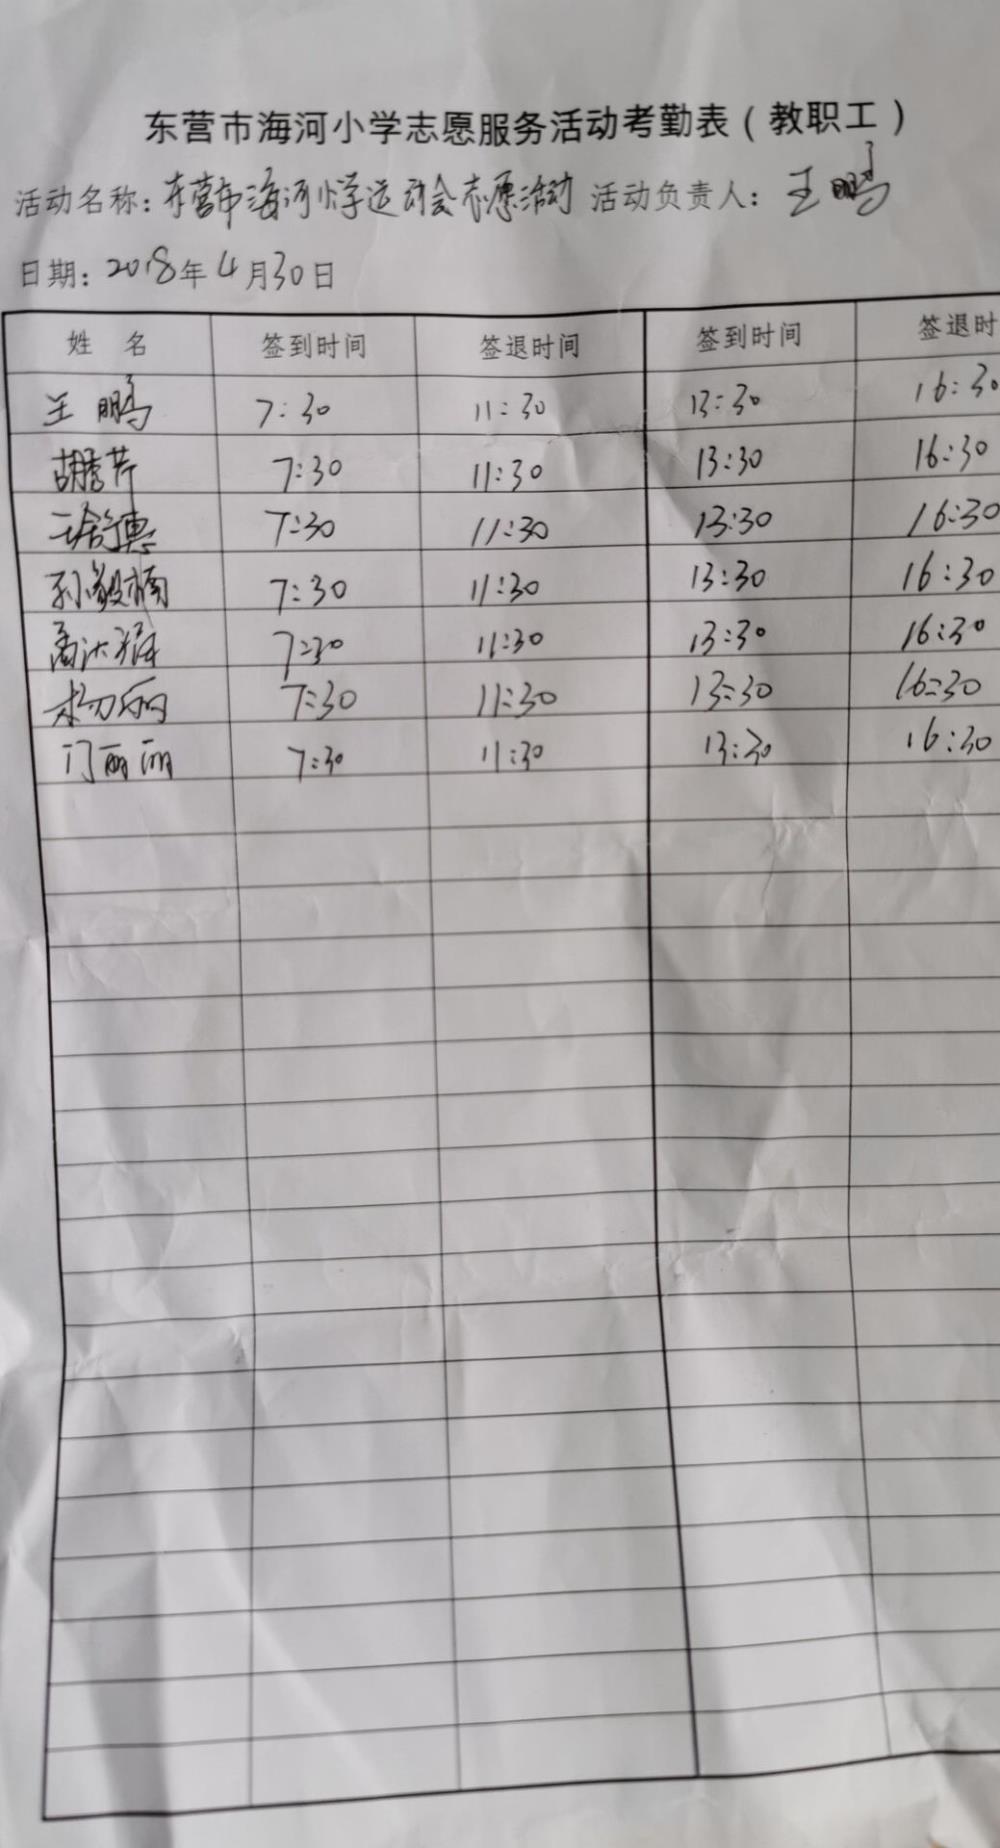 东营市海河小学志愿服务活动考勤表（教职工）
活动名称：东营市海河小学运动会志愿活动 活动负责人：王鹏
日期：2018年4月30日
姓 名 签到时间 签退时间 签到时间 签退时
王鹏 7:30 11:30 13:30 16:30
胡秀芹 7:30 11:30 13:30 16:30
王舒惠 7:30 11:30 13:30 16:30
孙毅楠 7:30 11:30 13:30 16:30
7:30 11:30 13:30 16:30
杨丽 7:30 11:30 13:30 16:30
门丽丽 7:30 11:30 13:30 16:30